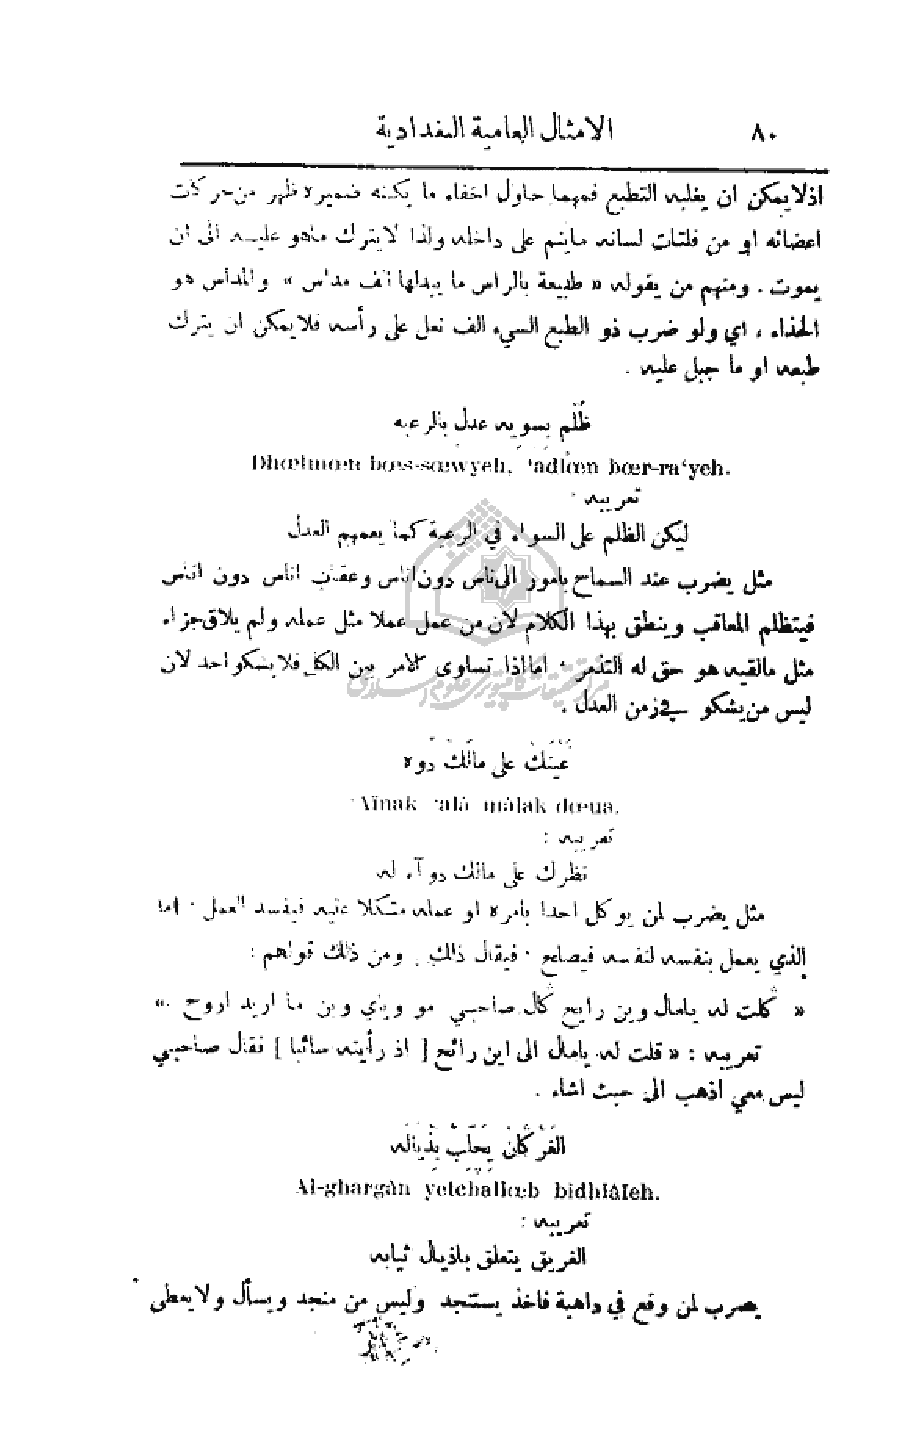 ٨٠ الامثال العامية البغدادية
اذلايمكن ان يغلبه التطبع فمهما حاول اخفاء ما يكنه ضميره ظهر من حركات
اعضائه او من فلتات لسانه ماينم على داخله ولذا لايترك ماهو عليه الى ان
يموت . ومنهم من يقوله « طبيعة بالراس ما يبدلها الف مداس » والمداس هو
الحذاء ، اي ولو ضرب ذو الطبع السيء الف نعل على رأسه فلا يمكن ان يترك
طبعه او ما جبل عليه .
ظُلْم بسويه عدل بالرعيه
Dhœlmœn bœs-sœwyeh, 'adlœn bœr-ra'yeh.
تعريبه :
ليكن الظلم على السواء في الرعية كما يعمهم العدل
مثل يضرب عند السماح بامور الى ناس دون اناس وعقاب اناس دون اناس
فيتظلم المعاقب وينطق بهذا الكلام لان من عمل عملا مثل عمله ولم يلاق جزاء
مثل مالقيه هو حق له التذمر . امااذا تساوى الامر بين الكل فلايشكو احد لان
ليس من يشكو في زمن العدل .
عَيْنَكْ على مالَكْ دَوه
'Aïnak 'alà màlak dœua.
تعريبه :
نظرك على مالك دوآء له
مثل يضرب لمن يوكل احدا بأمره او عمله متكلا عليه فيفسد العمل . اما
الذي يعمل بنفسه لنفسه فيصلح . فيقال ذلك . ومن ذلك قولهم :
« گلت له يامال وين رايح گال صاحبي مو وياي وين ما اريد اروح .»
تعريبه : « قلت له يامال الى اين رائح [ اذ رأيته سائبا ] فقال صاحبي
ليس معي اذهب الى حيث اشاء .
الغَرْگانْ يِچَلِّبْ بِذْيالَه
Al-ghargàn yetchallœb bidhiàleh.
تعريبه :
الغريق يتعلق باذيال ثيابه
يضرب لمن وقع في داهية فاخذ يستنجد وليس من منجد ويسأل ولايعطى